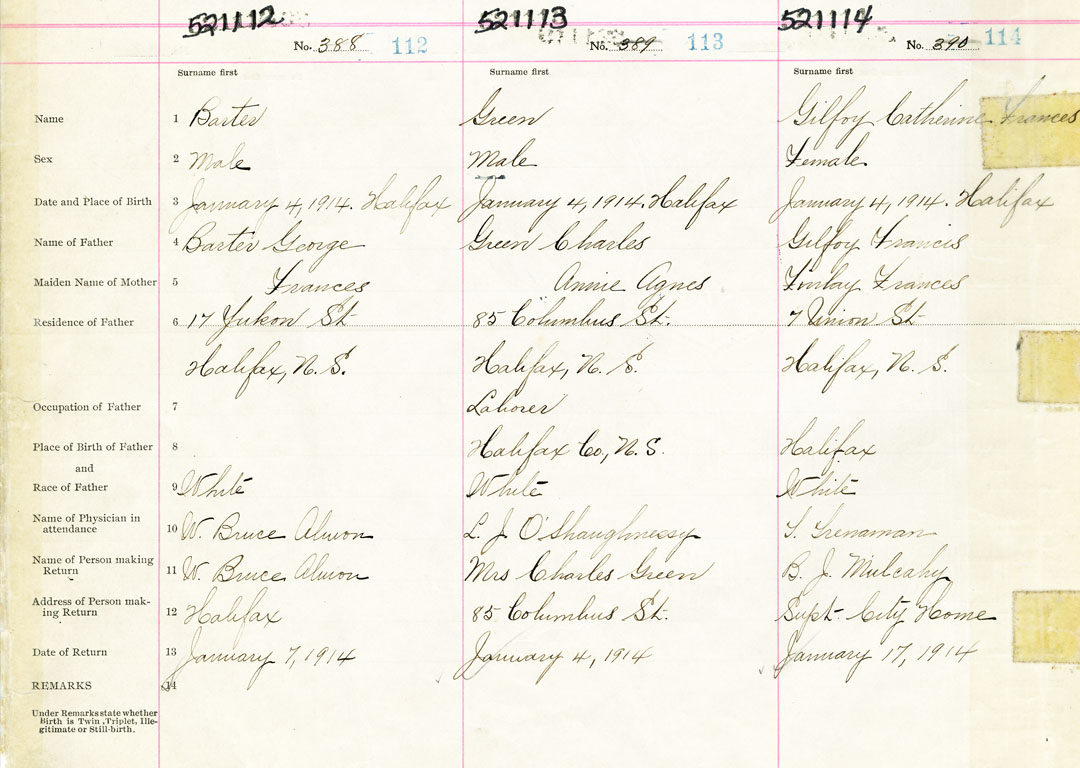 521112 521113 521114
No. 388 112 No. 389 113 No. 390 114
Surname first Surname first Surname first
Name 1 Barter Green Gilfoy Catherine Frances
Sex 2 Male Male Female
Date and Place of Birth 3 January 4, 1914. Halifax January 4, 1914. Halifax January 4, 1914. Halifax
Name of Father 4 Barter George Green Charles Gilfoy Francis
Maiden Name of Mother 5 Frances Annie Agnes Finlay Frances
Residence of Father 6 17 Yukon St 85 Columbus St. 7 Union St
Halifax, N. S. Halifax, N. S. Halifax, N. S.
Occupation of Father 7 Laborer
Place of Birth of Father 8 Halifax Co., N. S. Halifax
and
Race of Father 9 White White White
Name of Physician in
attendance 10 W. Bruce Almon L. J. O'Shaughnessy Trenaman
Name of Person making
Return 11 W. Bruce Almon Mrs Charles Green B. J. Mulcahy
Address of Person mak-
ing Return 12 Halifax 85 Columbus St. Supt. City Home
Date of Return 13 January 7, 1914 January 4, 1914 January 17, 1914
REMARKS 14
Under Remarks state whether
Birth is Twin, Triplet, Ille-
gitimate or Still-birth.